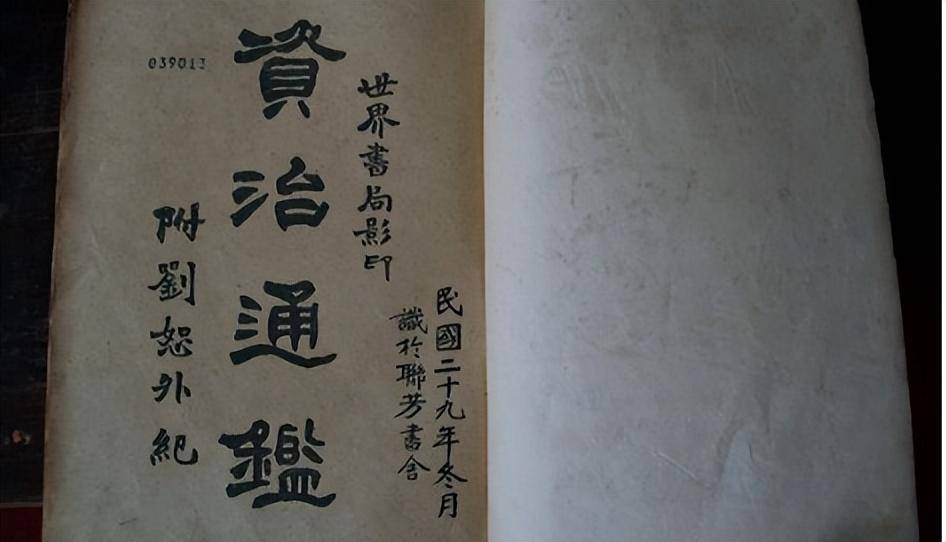 民國二十九年冬月
識於聯芳書舍
世界書局影印
資治通鑑
附劉恕外紀
039013